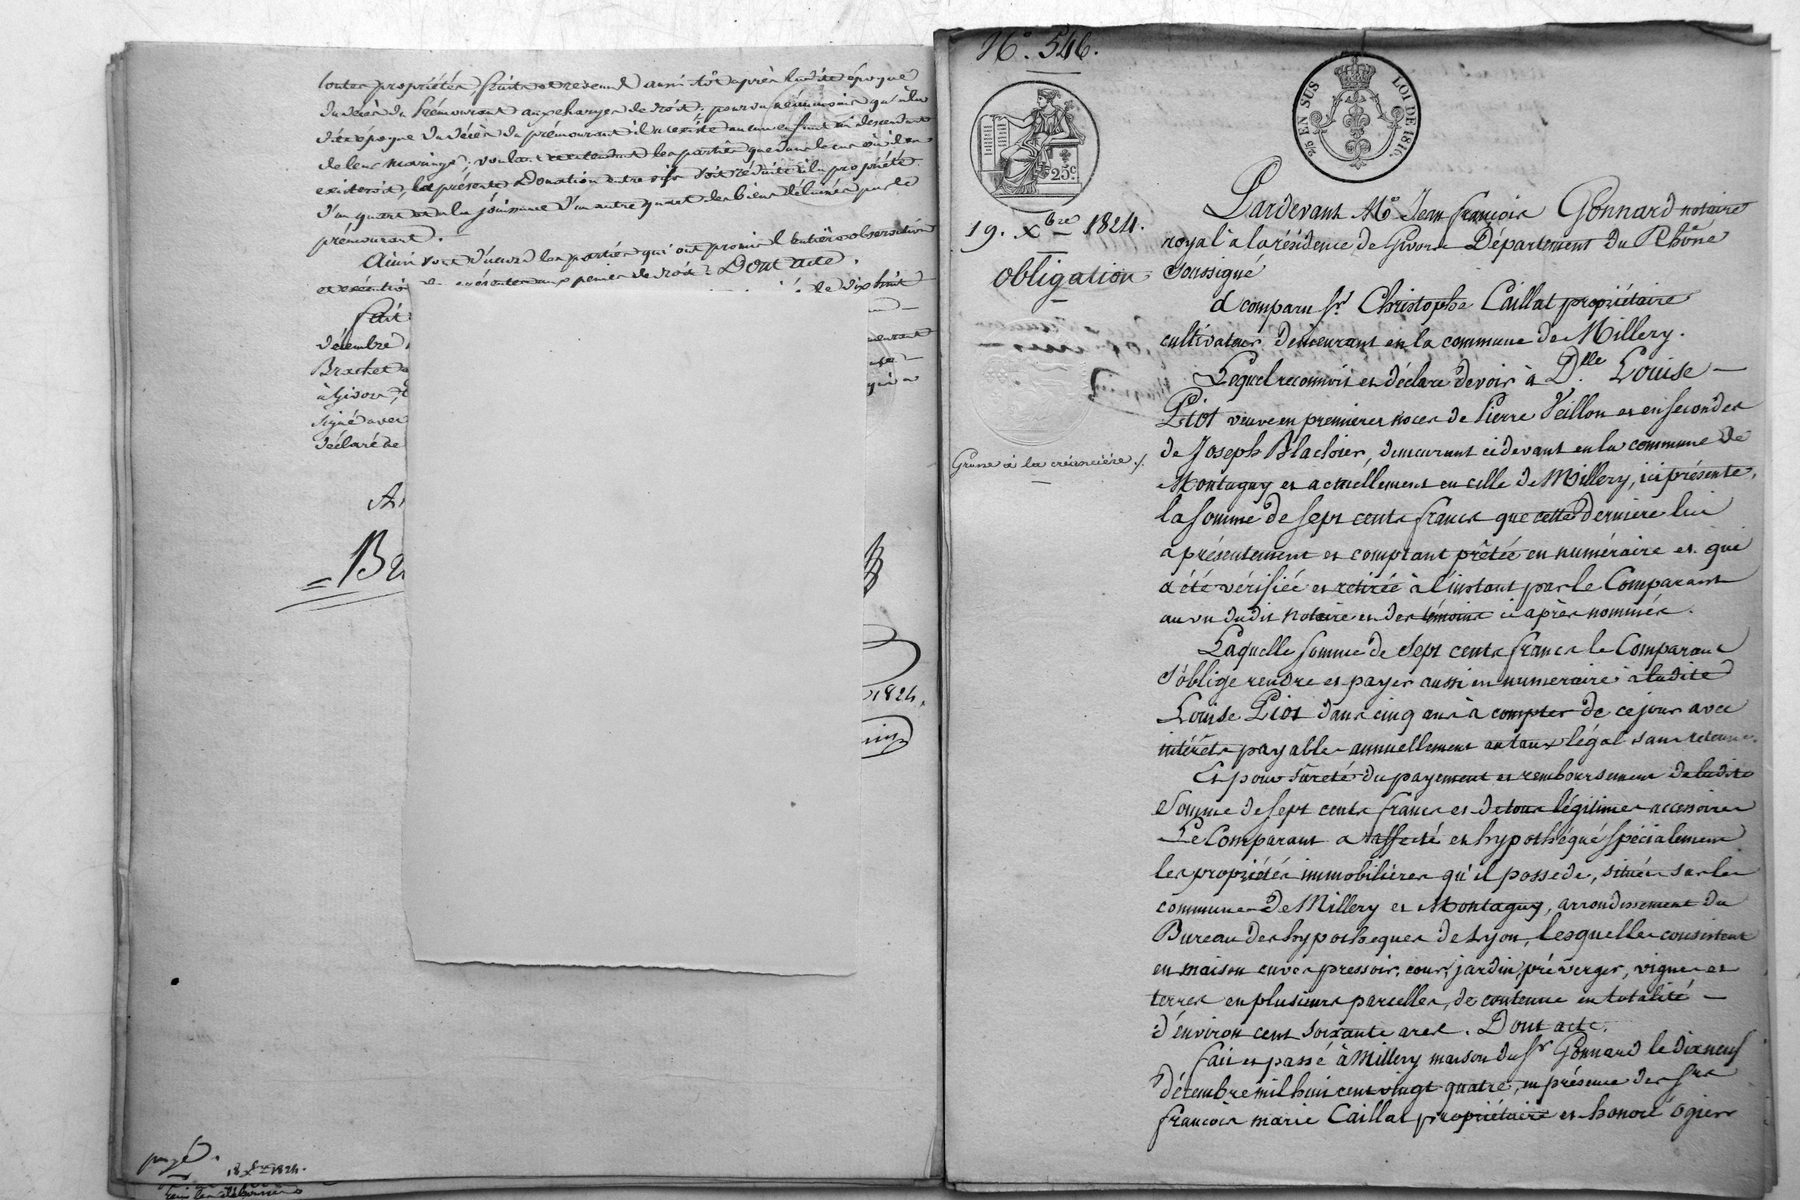 toutes propriétés fruits et revenus aussi tôt après ladite époque
du décès du prémourant aux charges de droit, pourvu néanmoins qu'à la
dite époque du décès du prémourant il n'existe aucun enfant ni descendant
de leur mariage; voulant et entendant les parties que dans le cas où il en
existeroit, la présente Donation entre vifs soit réduite à la propriété
d'un quart et à la jouissance d'un autre quart des biens délaissés par le
prémourant.
Ainsi voulu les parties qui ont promis l'entière observation
et exécution des présentes aux peines de droit. Dont acte.
fait
décembre
Brachet
à Givors,
signé avec
déclaré ne
de dix huit
1824.
18 Xbre 1824.
N.° 546.
25 EN SUS
LOI DE 1816.
25c
19. Xbre 1824.
Obligation
Grosse à la créancière./.
Pardevant Me. Jean françois Gonnard notaire
royal à la résidence de Givors Département du Rhône
soussigné
a comparu Sr. Christophe Caillat propriétaire
cultivateur demeurant en la commune de Millery.
Lequel reconnoit et déclare devoir à Dlle. Louise
Piot veuve en premieres noces de Pierre Veillon et en secondes
de Joseph Blachier, demeurant cidevant en la commune de
Montagny et actuellement en celle de Millery, ici présente,
la somme de sept cents francs que cette dernière lui
a présentement et comptant prêtée en numéraire et qui
a été vérifiée et retirée à l'instant par le Comparant
au vu dudit notaire et des témoins ci après nommés.
Laquelle somme de sept cents francs le Comparant
s'oblige rendre et payer aussi en numéraire à ladite
Louise Piot dans cinq ans à compter de ce jour avec
intérêts payables annuellement au taux légal sans retenue.
Et pour sûreté du payement et remboursement de ladite
somme de sept cents francs et de tous légitimes accessoires
Le Comparant a affecté et hypothéqué spécialement
les propriétés immobilières qu'il possede, situées sur les
communes de Millery et Montagny, arrondissement du
Bureau des hypotheques de Lyon, lesquelles consistent
en maison cuves pressoir, cour, jardin, pré verger, vignes et
terres en plusieurs parcelles, de contenue en totalité
d'environ cent soixante ares. Dont acte.
fait et passé à Millery maison du Sr. Gonnard le dix neuf
décembre mil huit cent vingt quatre, en présence des Srs
françois marie Caillat propriétaire et honoré Ogier